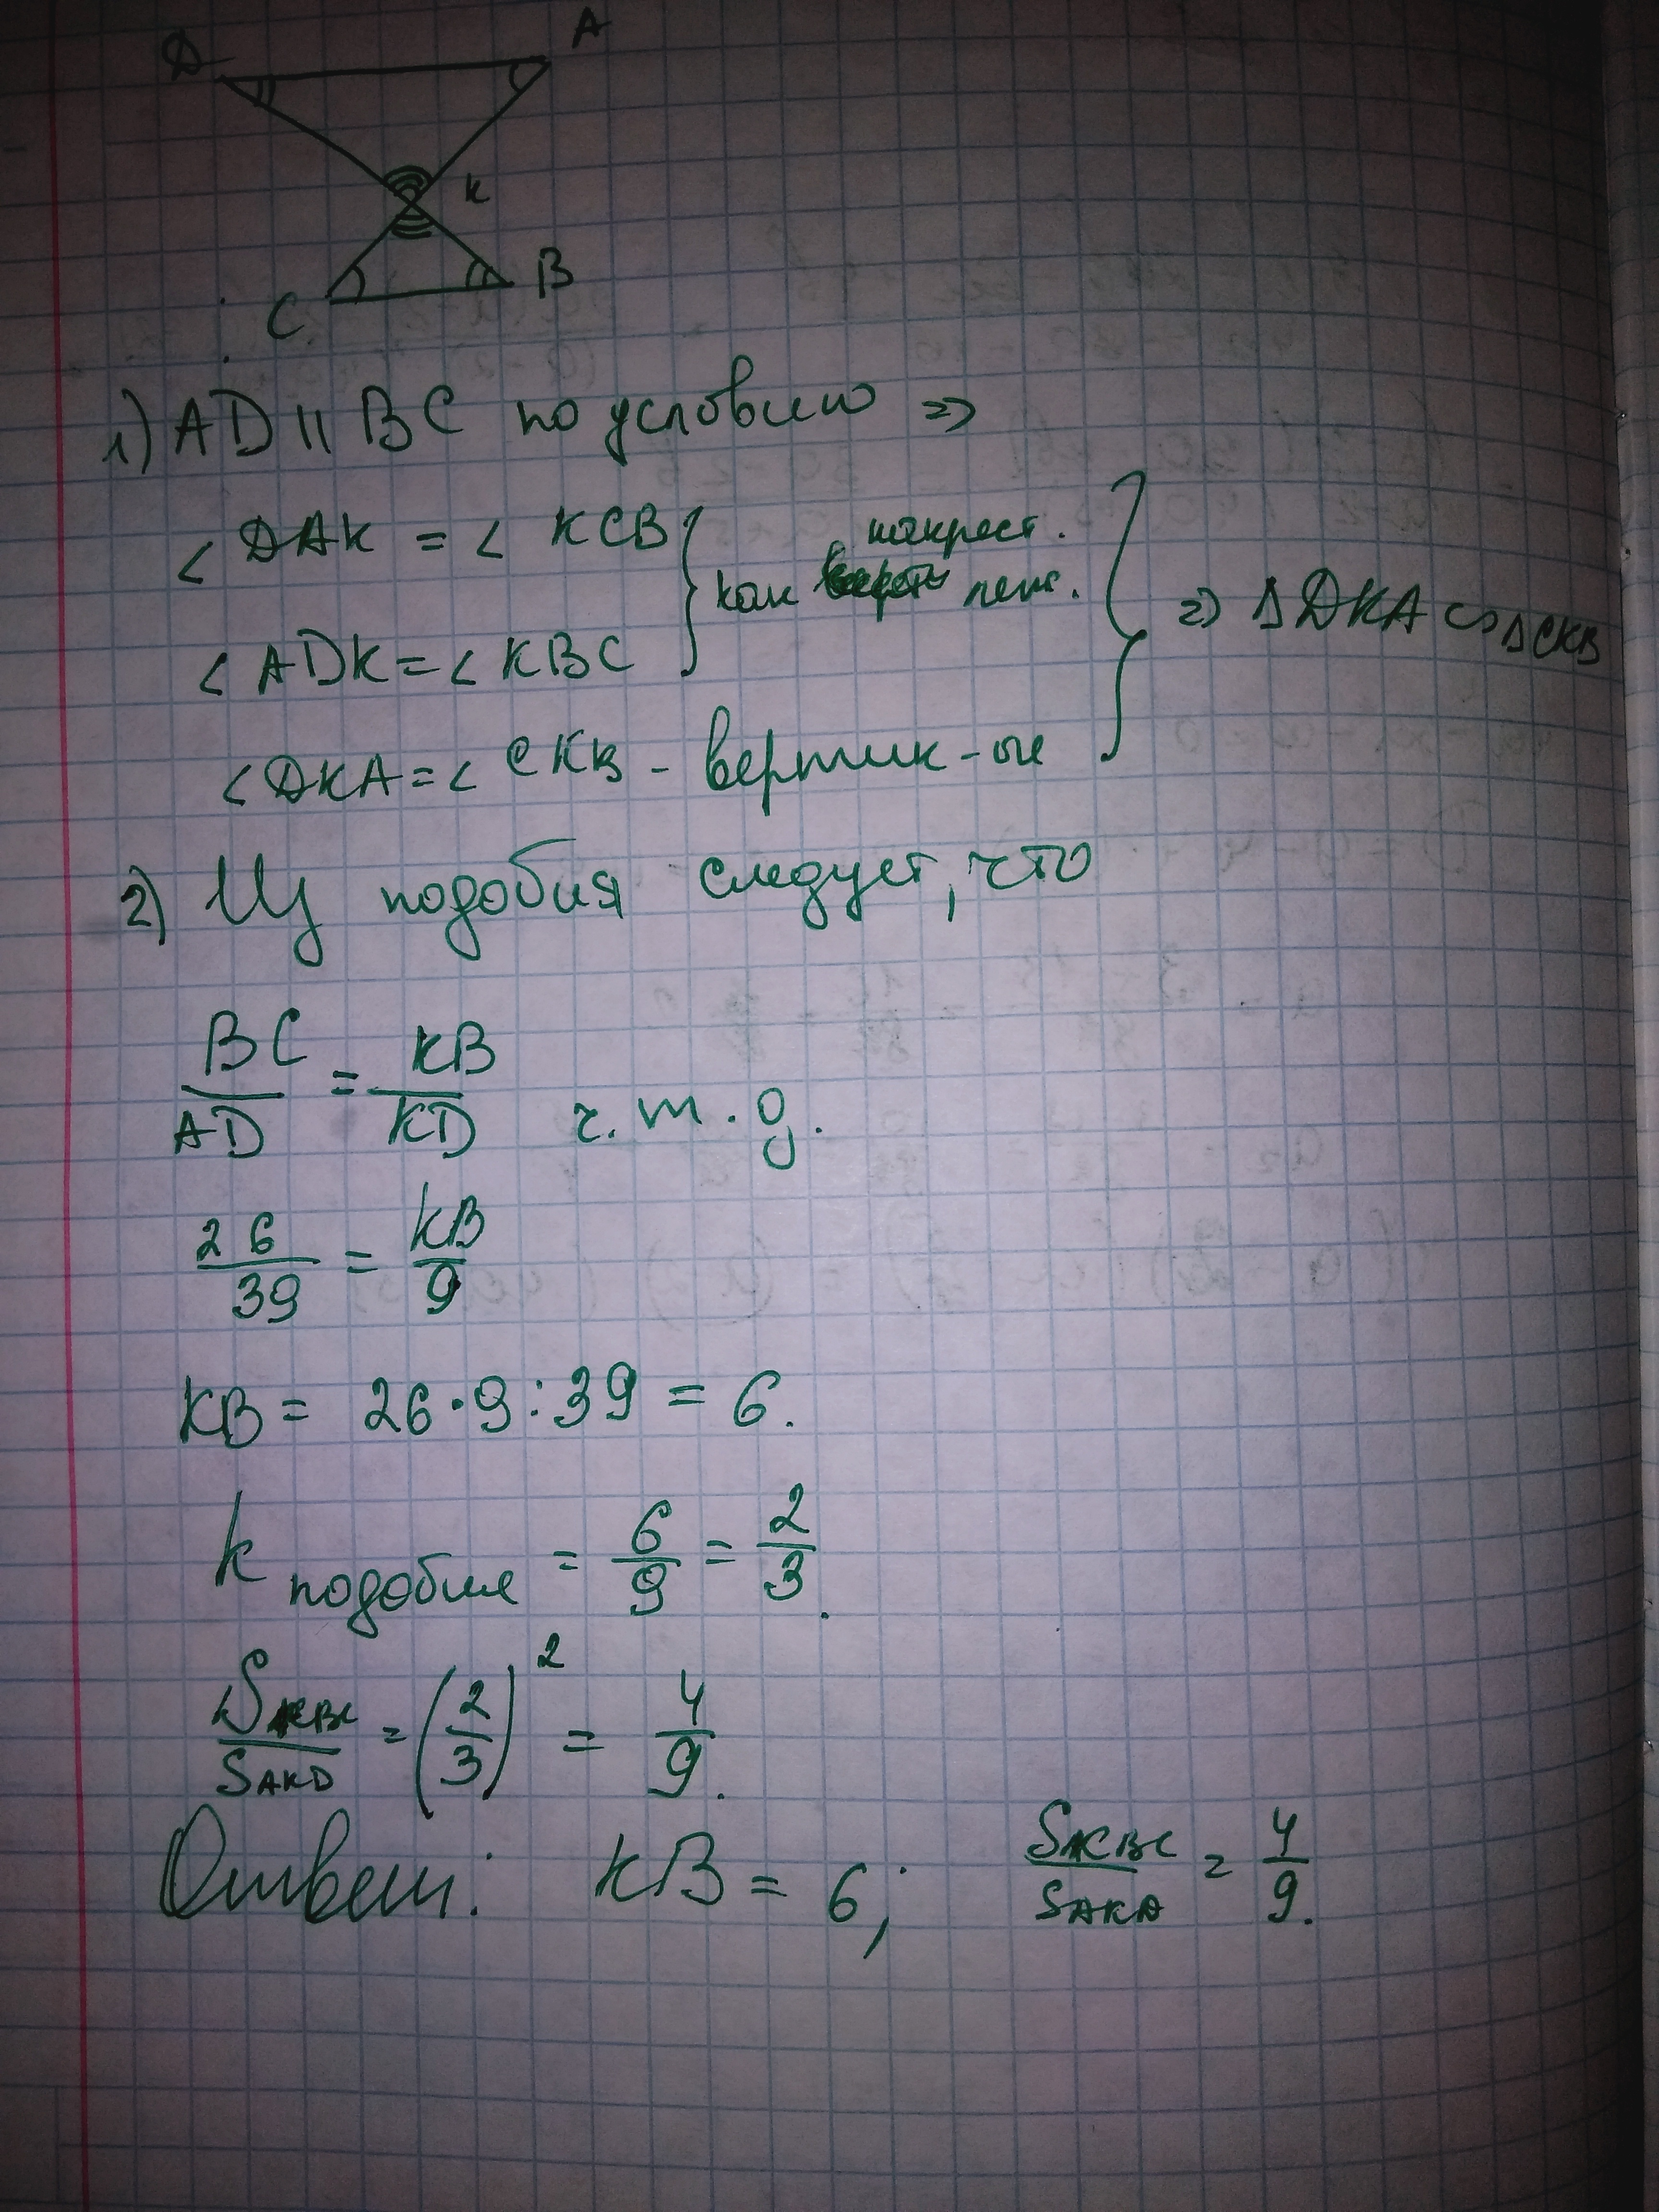 D A
K
C B
1) AD || BC по условию =>
∠ DAK = ∠ KCB } накрест.
как леж.
∠ ADK = ∠ KBC
=> Δ DKA ∽ Δ CKB
∠ DKA = ∠ CKB - вертик-ые
2) Из подобия следует, что
BC/AD = KB/KD ч.т.д.
26/39 = KB/9
KB = 26·9:39 = 6.
k подобия = 6/9 = 2/3.
S KBC / S AKD = (2/3)² = 4/9.
Ответ: KB = 6; S KBC / S AKA = 4/9.